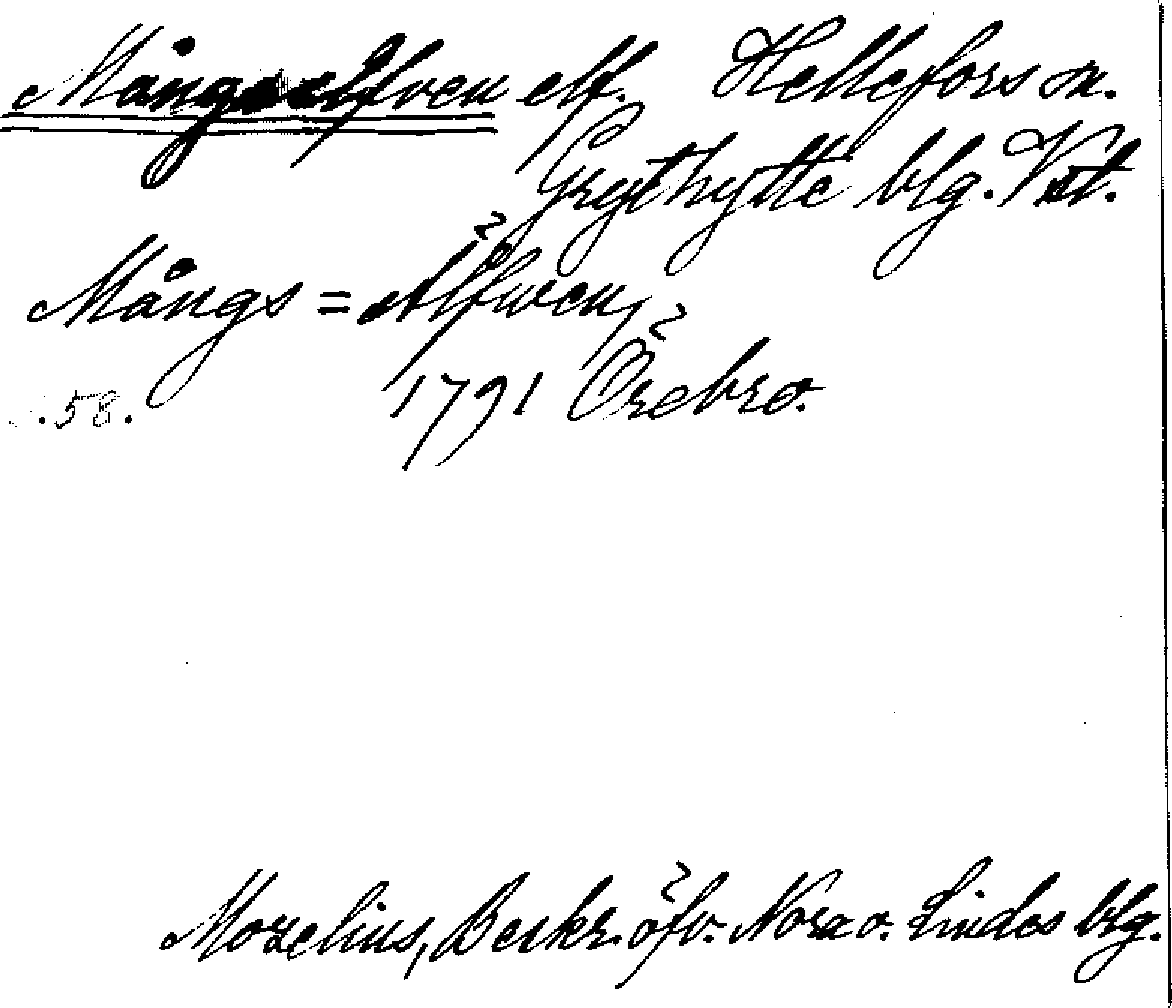 Mångsälfven elf. Hellefors sn.
Grythytte blg. Vstl.
Mångs=Älfwen,
s.58. 1791 Örebro.
Morelius, Beskr. öfv. Nora o. Lindes blg.